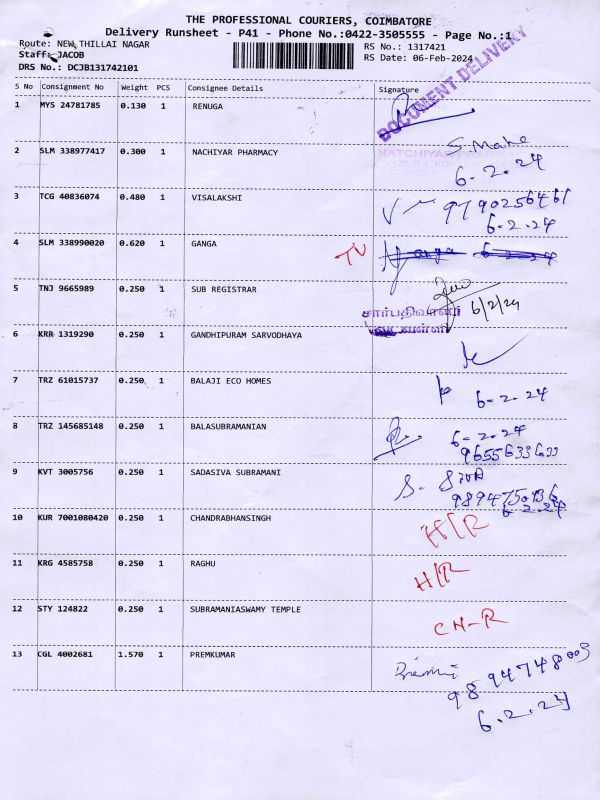 THE PROFESSIONAL COURIERS, COIMBATORE
Delivery Runsheet - P41 - Phone No.:0422-3505555 - Page No.:1
Route: NEW THILLAI NAGAR
RS No.: 1317421
Staff: JACOB
RS Date: 06-Feb-2024
DRS No.: DCJB131742101
S No Consignment No Weight PCS Consignee Details Signature
1 MYS 24781785 0.130 1 RENUGA
DOCUMENT DELIVERY
2 SLM 338977417 0.300 1 NACHIYAR PHARMACY
6.2.24
3 TCG 40836074 0.480 1 VISALAKSHI
9790256461
6.2.24
4 SLM 338990020 0.620 1 GANGA
5 TNJ 9665989 0.250 1 SUB REGISTRAR
6/2/24
சார்பதிவாளர்
6 KRR 1319290 0.250 1 GANDHIPURAM SARVODHAYA
7 TRZ 61015737 0.250 1 BALAJI ECO HOMES
6-2-24
8 TRZ 145685148 0.250 1 BALASUBRAMANIAN
6-2-24
9655633633
9 KVT 3005756 0.250 1 SADASIVA SUBRAMANI
6.2.24
10 KUR 7001080420 0.250 1 CHANDRABHANSINGH
H/R
11 KRG 4585758 0.250 1 RAGHU
H/R
12 STY 124822 0.250 1 SUBRAMANIASWAMY TEMPLE
CN-R
13 CGL 4002681 1.570 1 PREMKUMAR
9894748003
6.2.24